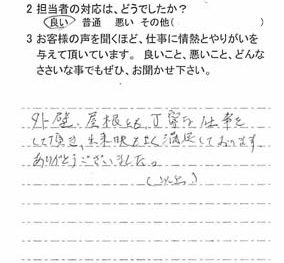 2 担当者の対応は、どうでしたか？
良い 普通 悪い その他(　　　)
3 お客様の声を聞くほど、仕事に情熱とやりがいを
与えて頂いています。良いこと、悪いこと、どんな
ささいな事でもぜひ、お聞かせ下さい。
外壁、屋根とも、丁寧な仕事を
して頂き、出来映えもよく満足しております。
ありがとうございました。
(以上)